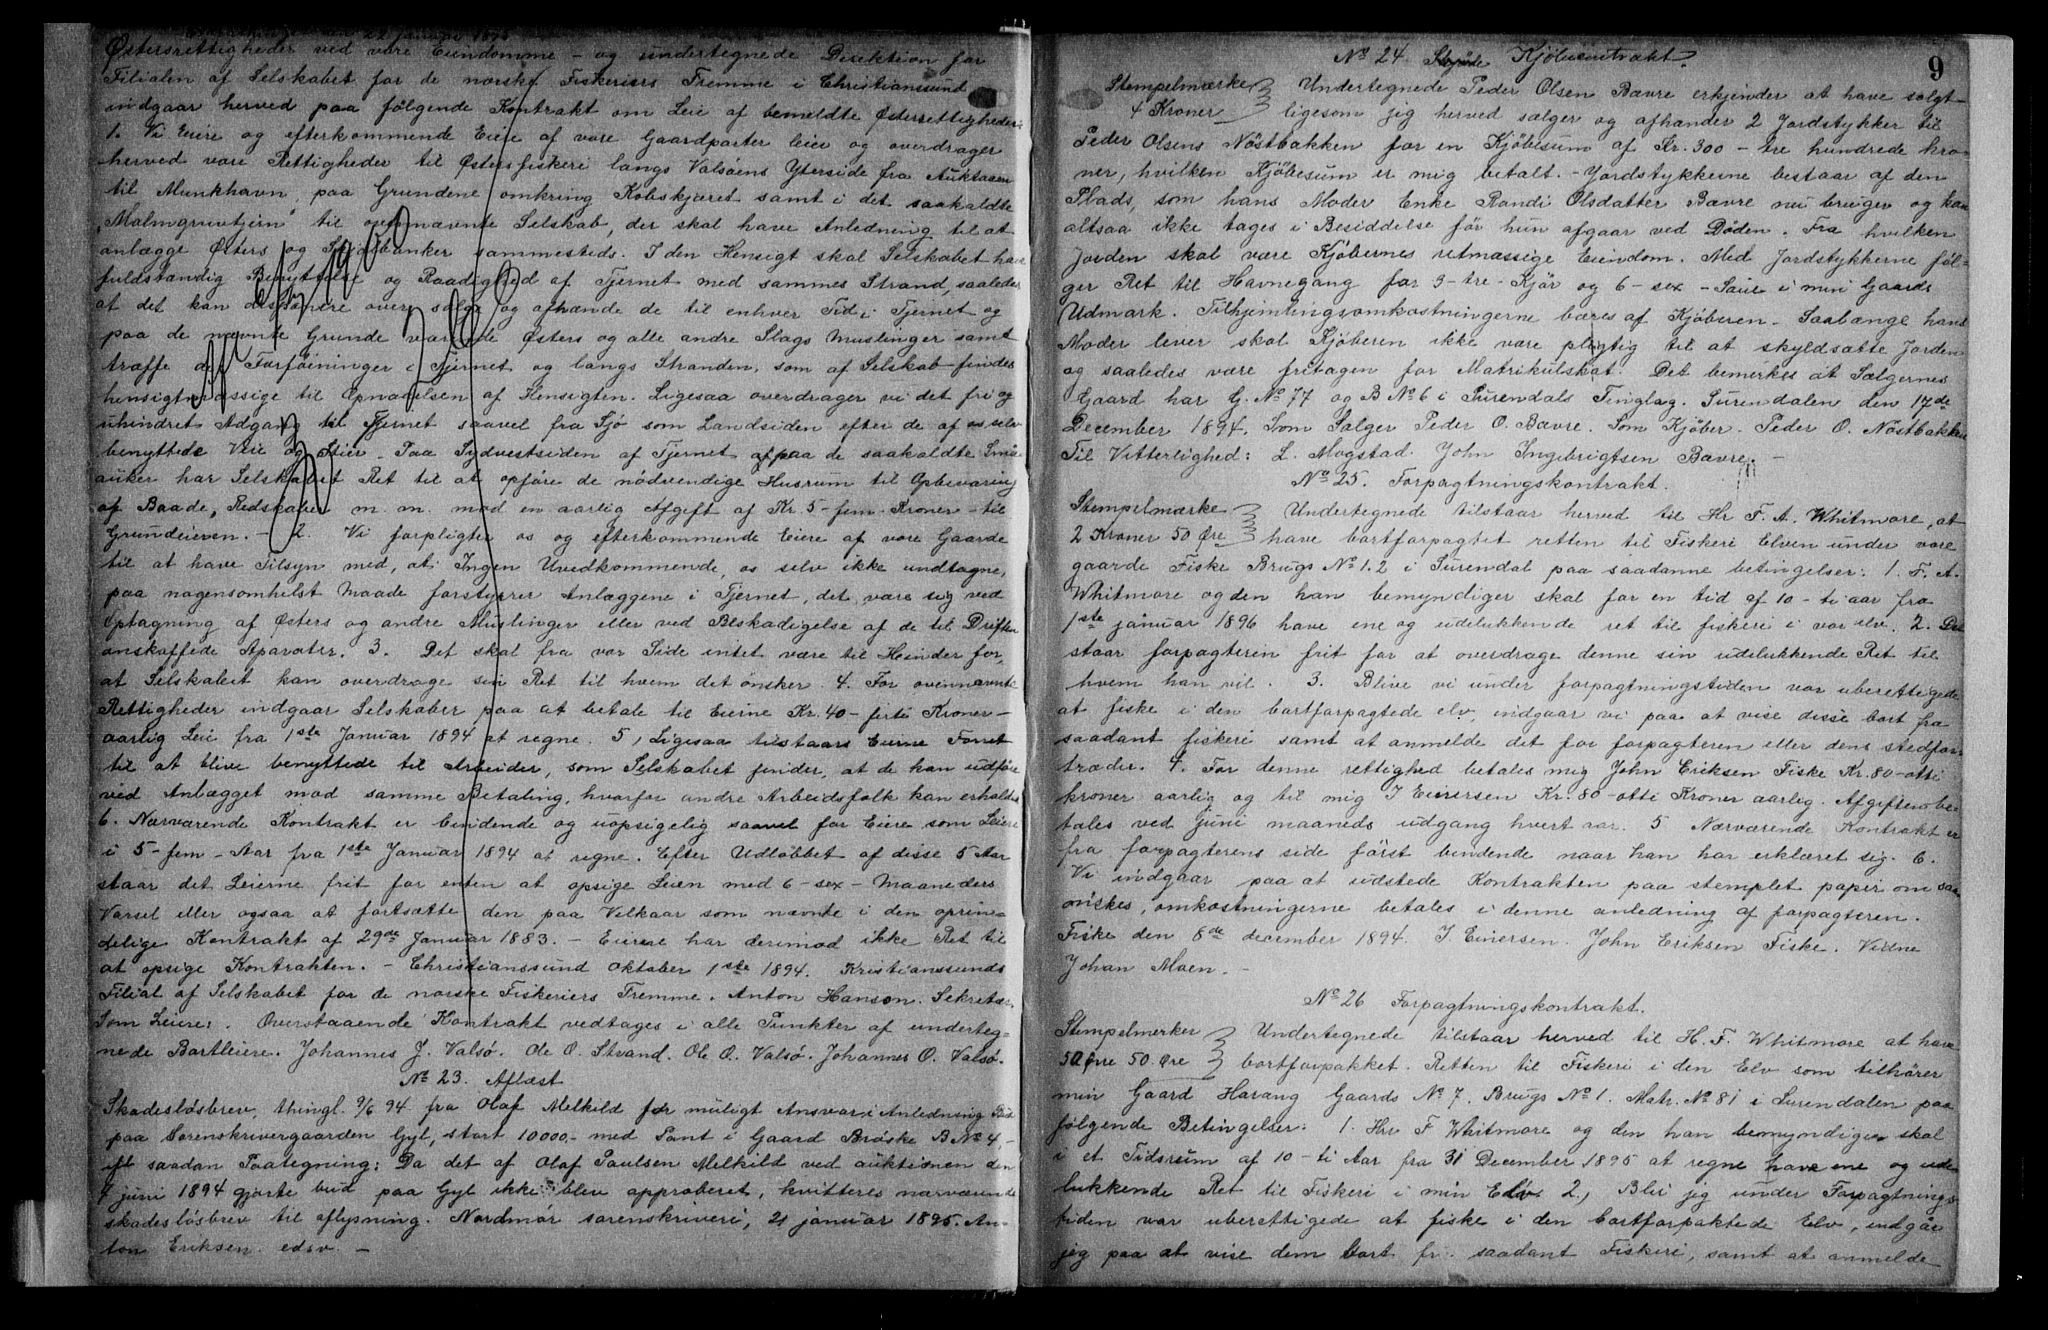 Østersrettigheder ved vore Eiendomme – og undertegnede Direktion for
Filialen af Selskabet for de norske Fiskeriers Fremme i Christianssund
indgaar herved paa følgende Kontrakt om Leie af bemeldte Østerrettigheder:
1. Vi Eiere og efterkommende Eiere af vore Gaardparter leie og overdrager
herved vore Rettigheder til Østersfiskeri langs Valsøens Yterside fra
til Munkhavn, paa Grundene omkring Kobskjæret samt i det saakaldte
„Malmgruvtjern" til ovennævnte Selskab, der skal have Anledning til at
anlægge Østers og Skjælbanker sammesteds. I den Hensigt skal Selskabet have
fuldstændig Benyttelse og Raadighed af Tjernet med sammes Strand, saaledes
at det kan disponere over, sælge og afhænde de til enhver Tid i Tjernet og
paa de nævnte Grunde værende Østers og alle andre Slags Muslinger samt
træffe de Forføininger i Tjernet og langs Stranden, som af Selskab findes
hensigtmæssige til Opnaaelsen af Hensigten. Ligesaa overdrager vi det fri og
uhindret Adgang til Tjernet saavel fra Sjø som Landsiden efter de af os selv
benyttede Veie og Stier. Paa Sydvestsiden af Tjernet paa de saakaldte
har Selskabet Ret til at opføre de nödvendige Husrum til Opbevaring
af Baade, Redskaber m. m. mod en aarlig Afgift af Kr. 5 – fem – Kroner – til
Grundeieren. – 2. Vi forpligter os og efterkommende Eiere af vore Gaarde
til at have Tilsyn med, at Ingen Uvedkommende, os selv ikke undtagne,
paa nogensomhelst Maade forstyrrer Anlæggene i Tjernet, det være sig ved
Optagning af Østers og andre Muslinger eller ved Beskadigelse af de til Driften
anskaffede Aparater. 3. Det skal fra vor Side intet være til Hinder for,
at Selskabet kan overdrage sin Ret til hvem det ønsker. 4. For ovennævnte
Rettigheder indgaar Selskabet paa at betale til Eierne Kr. 40 – firti Kroner –
aarlig Leie fra 1ste Januar 1894 at regne. 5, Ligesaa tilstaaes Eierne Forret
til at blive benyttede til Arbeider, som Selskabet finder, at de kan udføre
ved Anlægget mod samme Betaling, hvorfor andre Arbeidsfolk kan erholdes
6. Nærværende Kontrakt er bindende og uopsigelig saavel for Eiere som Leiere
i 5 – fem – Aar fra 1ste Januar 1894 at regne. Efter Udløbbet af disse 5 Aar
staar det Leierne frit for enten at opsige Leien med 6 – sex – Maaneders
Varsel eller ogsaa at fortsætte den paa Velkaar som nævnte i den oprin-
delige Kontrakt af 29de Januar 1883. – Eierne har derimod ikke Ret til
at opsige Kontrakten. – Christianssund Oktober 1ste 1894. Kristianssunds
Filial af Selskabet for de norske Fiskeriers Fremme. Anton Hanson. Sekretær.
Som Leiere: Overstaaende Kontrakt vedtages i alle Punkter af underteg-
nede Bortleiere. Johannes J. Valsø. Ole O. Strand. Ole O. Valsø. Johannes O. Valsø.
No 23. Aflæst
Skadesløsbrev, thingl. 9/6 94 fra Olaf Melkild for muligt Ansvar i Anledning Bud
paa Sorenskrivergaarden Gyl, stort 10000,– med Pant i Gaard Brøske B No 4 –
saadan Paategning: Da det af Olaf Paulsen Melkild ved auktionen den
7 juni 1894 gjorte bud paa Gyl ikke blev approberet, kvitteres nærværende
skadesløsbrev til aflysning. Nordmør sorenskriveri, 21 januar 1895. An-
ton Eriksen edsv. –
9
No 24 Kjøbekontrakt.
Stempelmærke Undertegnede Peder Olsen Bævre erkjender at have solgt
4 Kroner ligesom jeg herved sælger og afhænder 2 Jordstykker til
Peder Olsens Nöstbakken for en Kjöbesum af Kr. 300 – tre hundrede kro-
ner, hvilken Kjöbesum er mig betalt. – Jordstykkerne bestaar af den
Plads, som hans Moder Enke Randi Olsdatter Bævre nu bruger og kan
altsaa ikke tages i Besiddelse før hun afgaar ved Döden. Fra hvilken
Jorden skal være Kjøbernes retmæssige Eiendom. Med Jordstykkerne föl-
ger Ret til Havnegang for 3 – tre – Kjör og 6 – sex – Sauer i min Gaards
Udmark. Tilhjemlingsomkostningerne bæres af Kjøberen. Saalænge hans
Moder lever skal Kjøberen ikke være pligtig til at skyldsætte Jorden
og saaledes være fritagen for Matrikulskat. Det bemerkes at Sælgernes
Gaard har G. No 77 og B No 6 i Surendals Tinglag. Surendalen den 17de
December 1894. Som Sælger Peder O. Bævre. Som Kjöber. Peder O. Nöstbakken
Til Vitterlighed: L. Mogstad. John Ingebrigtsen Bævre. –
No 25. Forpagtningskontrakt.
Stempelmærke Undertegnede tilstaar herved til Hr F. A. Whitmore, at
2 Kroner 50 Øre have bortforpagtet retten til Fiskeri Elven under vore
gaarde Fiske Brugs No 1. 2 i Surendal paa saadanne betingelser: 1. F. A.
Whitmore og den han bemyndiger skal for en tid af 10 – ti aar fra
1ste januar 1896 have ene og udelukkende ret til fiskeri i vor elv. 2. Det
staar forpagteren frit for at overdrage denne sin udelukkende Ret til
hvem han vil. 3. Blive vi under forpagtningstiden var uberettigede
at fiske i den bortforpagtede elv, indgaar vi paa at vise disse bort fra
saadant fiskeri samt at anmelde det for forpagteren eller dens stedfor-
træder. 4. For denne rettighed betales mig John Eriksen Fiske Kr. 80 – otti
kroner aarlig og til mig I Einersen Kr. 80 – otti Kroner aarlig. Afgiften be-
tales ved juni maaneds udgang hvert aar. 5 Nærværende Kontrakt er
fra forpagterens side först bindende naar han har erklæret sig. 6.
Vi indgaar paa at udstede Kontrakten paa stemplet papir om saa
önskes, omkostningerne betales i denne anledning af forpagteren.
Fiske den 8de december 1894. I. Einersen. John Eriksen Fiske. Vidne
Johan Moen. –
No 26 Forpagtningskontrakt.
Stempelmerker Undertegnede tilstaar herved til H. F. Whitmore at have
50 Øre 50 Øre bortforpakket. Retten til Fiskeri i den Elv som tilhører
min Gaard Harang Gaards No 7. Brugs No 1. Matr. No 81 i Surendalen paa
følgende Betingelser: 1. Hr F Whitmore og den han bemyndiger skal
i et Tidsrum af 10 – ti Aar fra 31 December 1895 at regne have ene og ude-
lukkende Ret til Fiskeri i min Elv. 2, Blir jeg under Forpagtnings-
tiden var uberettigede at fiske i den bortforpaktede Elv, indgår
jeg paa at vise dem bort fr. saadant Fiskeri, samt at anmelde